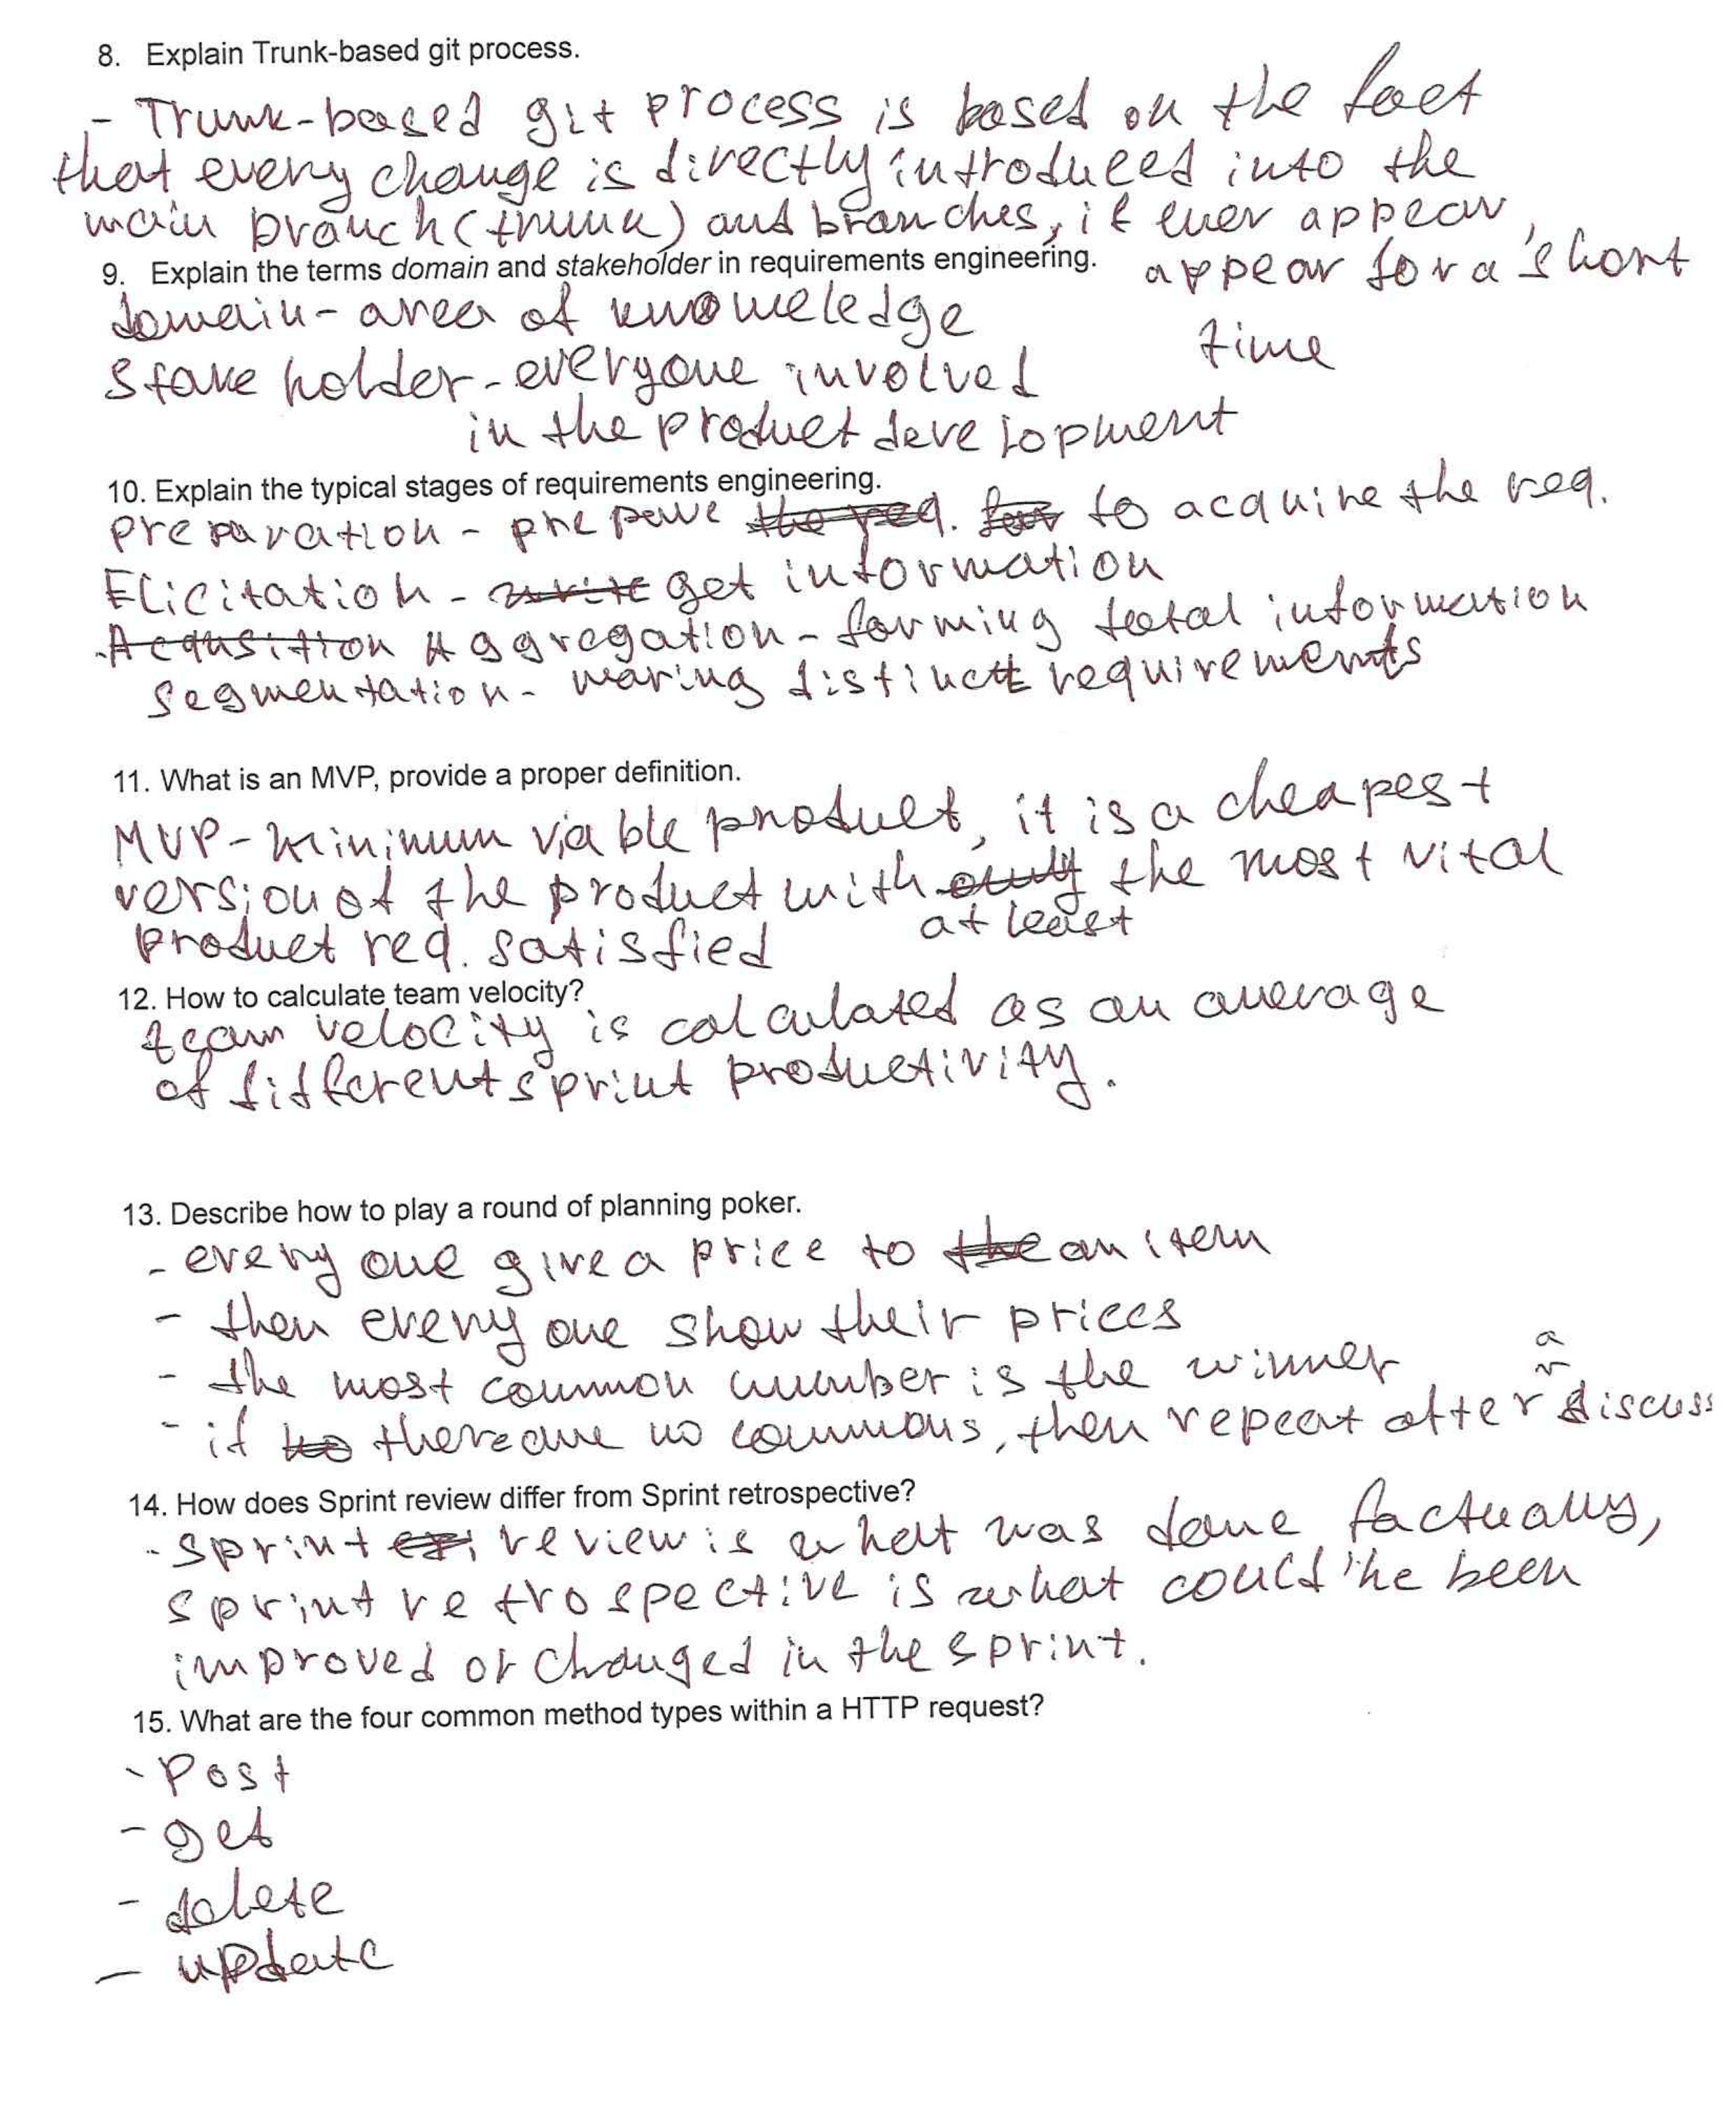 8. Explain Trunk-based git process.
- Trunk-based git process is based on the fact
that every change is directly introduced into the
main branch (trunk) and branches, if ever appear,
appear for a short
time
9. Explain the terms domain and stakeholder in requirements engineering.
domain - area of knoweledge
Stake holder - everyone involved
in the product development
10. Explain the typical stages of requirements engineering.
preparation - prepare the req. for to acquire the req.
Elicitation - write get information
Acqusition Aggregation - forming total information
segmentation - making distinct requirements
11. What is an MVP, provide a proper definition.
MVP - minimum viable product, it is a cheapest
version of the product with only the most vital
at least
product req. satisfied
12. How to calculate team velocity?
team velocity is calculated as an average
of different sprint productivity.
13. Describe how to play a round of planning poker.
- every one give a price to the an item
- then every one show their prices
- the most common number is the winner
- if no there are no commons, then repeat after a discuss
14. How does Sprint review differ from Sprint retrospective?
- sprint review is what was done factually,
sprint retrospective is what could've been
improved or changed in the sprint.
15. What are the four common method types within a HTTP request?
- Post
- get
- delete
- update